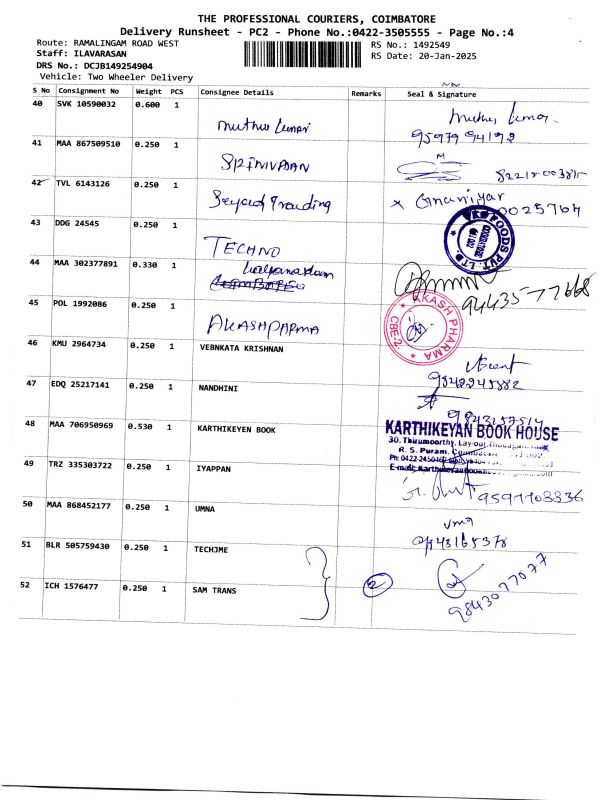 THE PROFESSIONAL COURIERS, COIMBATORE
Delivery Runsheet - PC2 - Phone No.:0422-3505555 - Page No.:4
Route: RAMALINGAM ROAD WEST
RS No.: 1492549
Staff: ILAVARASAN
RS Date: 20-Jan-2025
DRS No.: DCJB149254904
Vehicle: Two Wheeler Delivery
S No Consignment No Weight PCS Consignee Details Remarks Seal & Signature
40 SVK 10590032 0.600 1 muthu kumar
41 MAA 867509510 0.250 1 SRINIVASAN
M
42 TVL 6143126 0.250 1 Trading
43 DDG 24545 0.250 1 TECHNO
VKS FOODS PVT. LTD.
44 MAA 302377891 0.330 1 kalyanaram
45 POL 1992086 0.250 1 AKASH PARMA
AKASH PHARMA CBE-2
46 KMU 2964734 0.250 1 VEBNKATA KRISHNAN
9842245882
47 EDQ 25217141 0.250 1 NANDHINI
9843157514
48 MAA 706950969 0.530 1 KARTHIKEYEN BOOK
KARTHIKEYAN BOOK HOUSE
30, Thirumoorthy, Lay-out,
R. S. Puram,
49 TRZ 335303722 0.250 1 IYAPPAN
50 MAA 868452177 0.250 1 UMNA
uma
51 BLR 505759430 0.250 1 TECHJME
52 ICH 1576477 0.250 1 SAM TRANS 2
9843077077